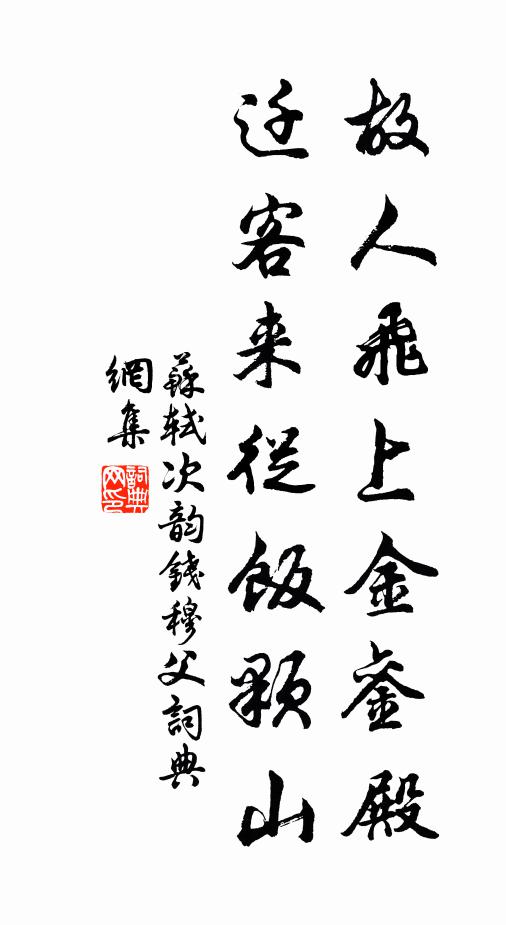 故人飛上金銮殿
迁客来從飯顆山
蘇轼次韵錢穆父詞典
網集
詞典
网印